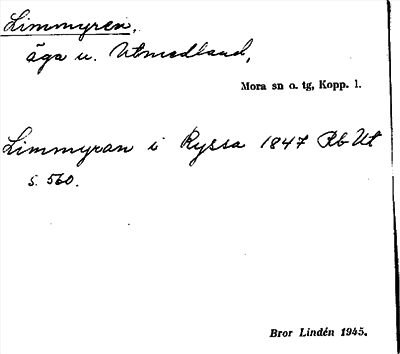 Limmyren,
äga u. Utmedland,
Mora sn o. tg, Kopp. l.
Limmyran i Ryssa 1847 Rb Ut
s. 560.
Bror Lindén 1945.